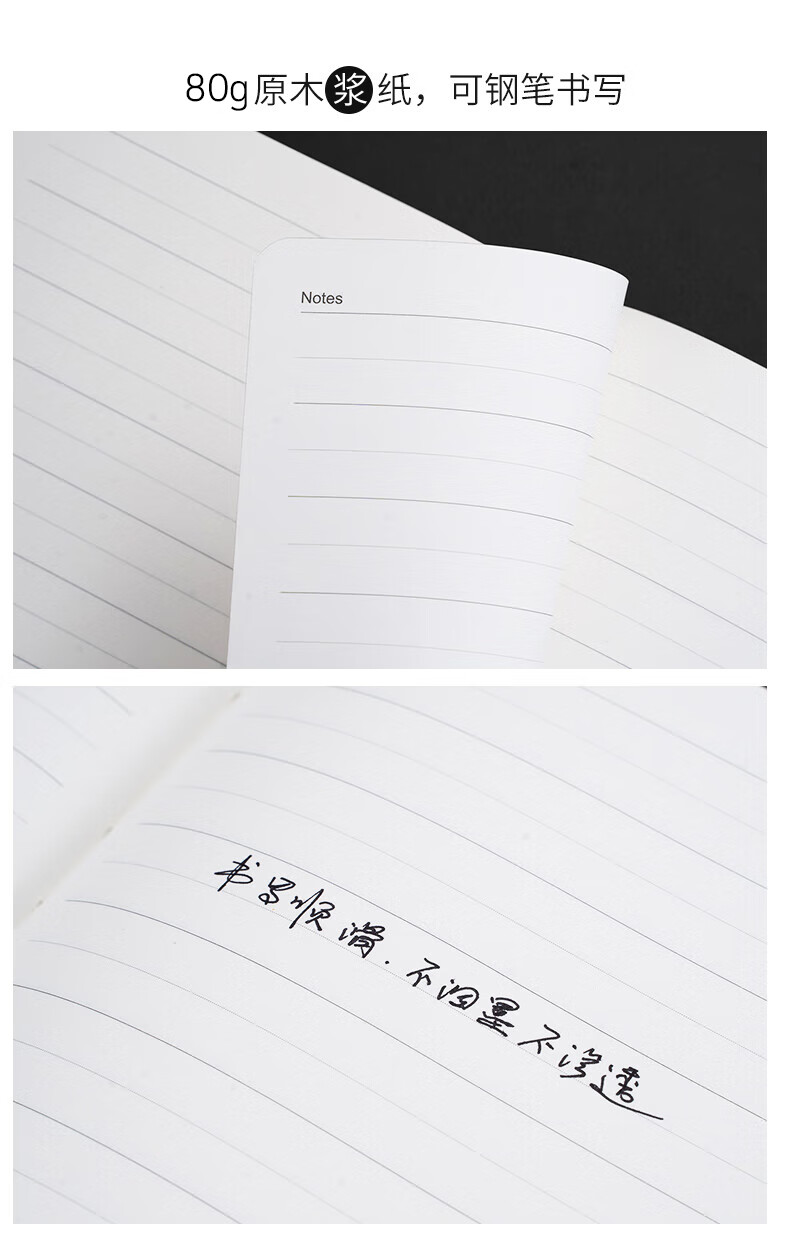 80g原木浆纸，可钢笔书写
Notes
书写顺滑.不洇墨不渗透